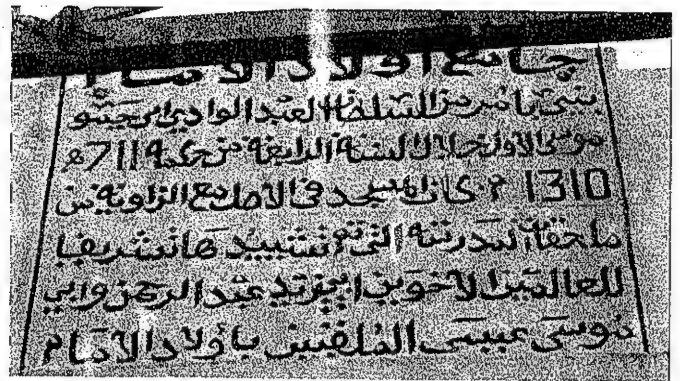 جامع أولاد الإمام
بني بأمر من السلطان العبد الوادي أبي حمو
موسى الأول خلال السنة الرابعة من حكمه 711 هـ
1310 م. كان المسجد في الأصل مع الزاوية من
ملحقات المدرسة التي تم تشييدها تشريفا
للعالمين الأخوين أبي زيد عبد الرحمن وأبي
موسى عيسى الملقبين بأولاد الإمام